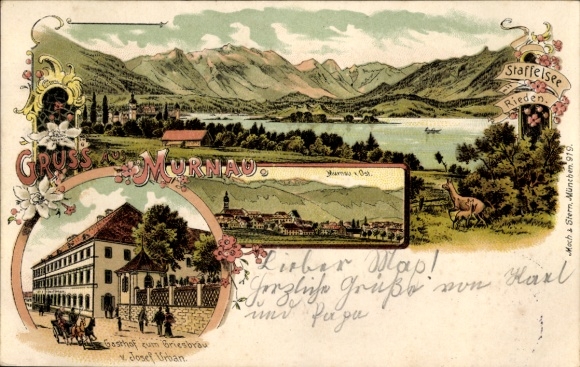 Staffelsee
Rieden.
Gruss aus Murnau.
Murnau v. Ost.
Gasthof zum Griesbräu
v. Josef Urban.
Lieber Max!
Herzliche Grüße von Karl
und Papa
Moch & Stern, München. 919.